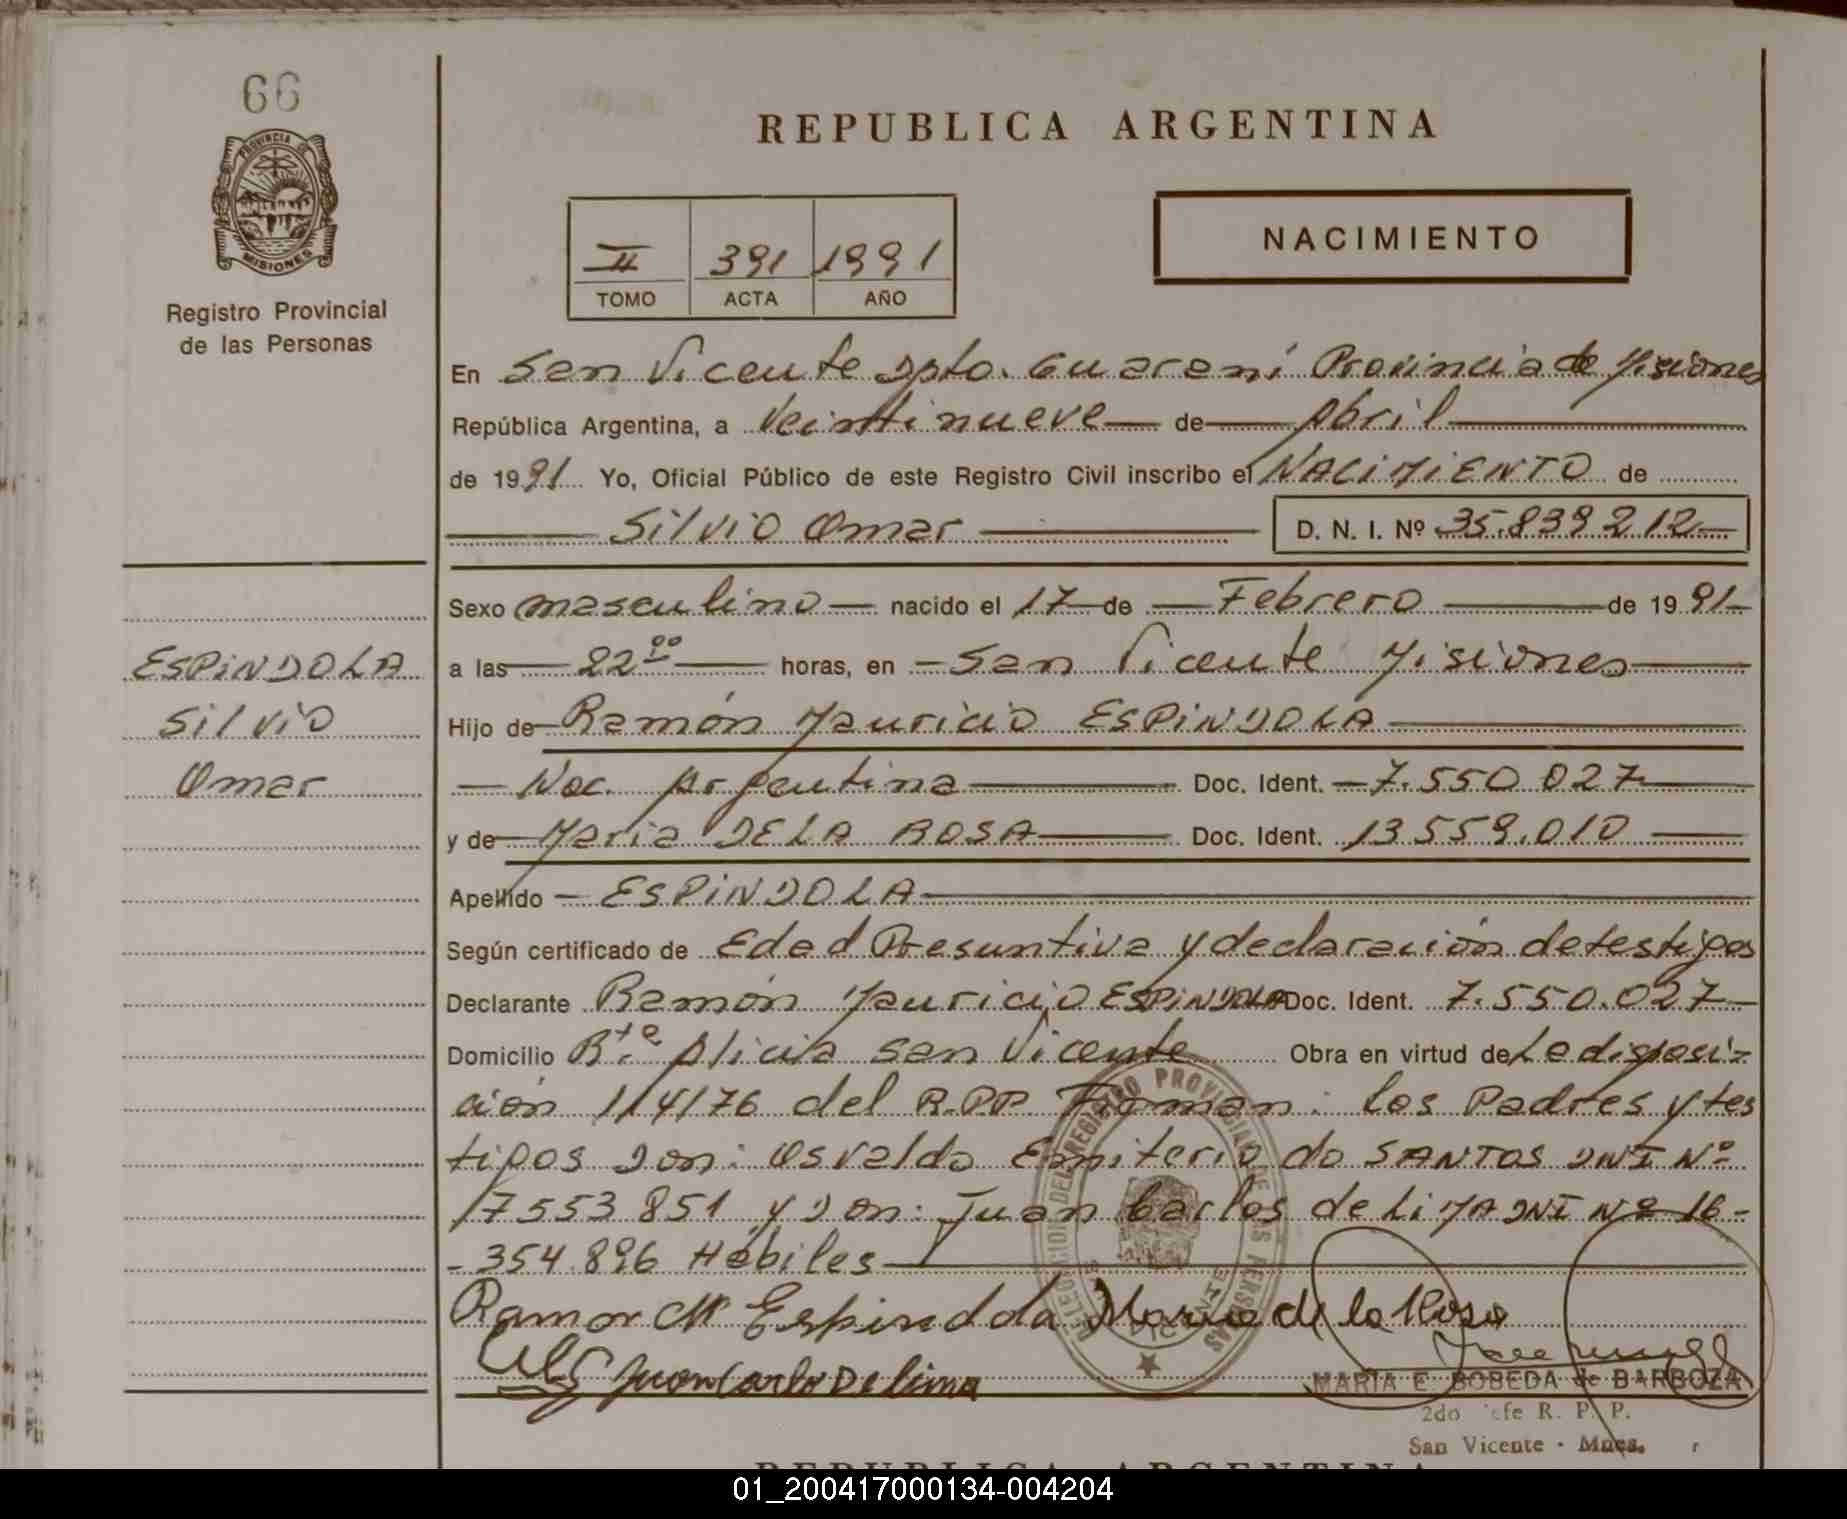 66
PROVINCIA DE
MISIONES
Registro Provincial
de las Personas
REPUBLICA ARGENTINA
II 391 1991
TOMO ACTA AÑO
NACIMIENTO
En San Vicente Dpto. Guaraní Provincia de Misiones
República Argentina, a Veintinueve de Abril
de 1991 Yo, Oficial Público de este Registro Civil inscribo el NACIMIENTO de
Silvio Omar D. N. I. Nº 35.839.212
Sexo masculino nacido el 17 de Febrero de 1991
a las 22⁰⁰ horas, en San Vicente Misiones
Hijo de Ramón Mauricio ESPINDOLA
Nac. Argentina Doc. Ident. 7.550.027
y de Maria DE LA ROSA Doc. Ident. 13.559.010
Apellido ESPINDOLA
Según certificado de Edad Presuntiva y declaración de testigos
Declarante Ramón Mauricio ESPINDOLA Doc. Ident. 7.550.027
Domicilio Bº Alicia San Vicente Obra en virtud de La disposi-
ción 114/76 del R.P.P. Firman: los Padres y tes
tigos Don: Osvaldo Emiterio do SANTOS DNI Nº
17553851 y Don: Juan Carlos de LIMA DNI Nº 16-
-354.896 Hábiles
Ramon M Espindola Maria de la Rosa
Juan Carlo De lima
MARIA E. BOBEDA de BARBOZA
2do Jefe R. P. P.
San Vicente - Mnes.
ESPINDOLA
Silvio
Omar
DELEGACION DEL REGISTRO PROVINCIAL DE LAS PERSONAS
SAN VICENTE
REPUBLICA ARGENTINA
01_200417000134-004204